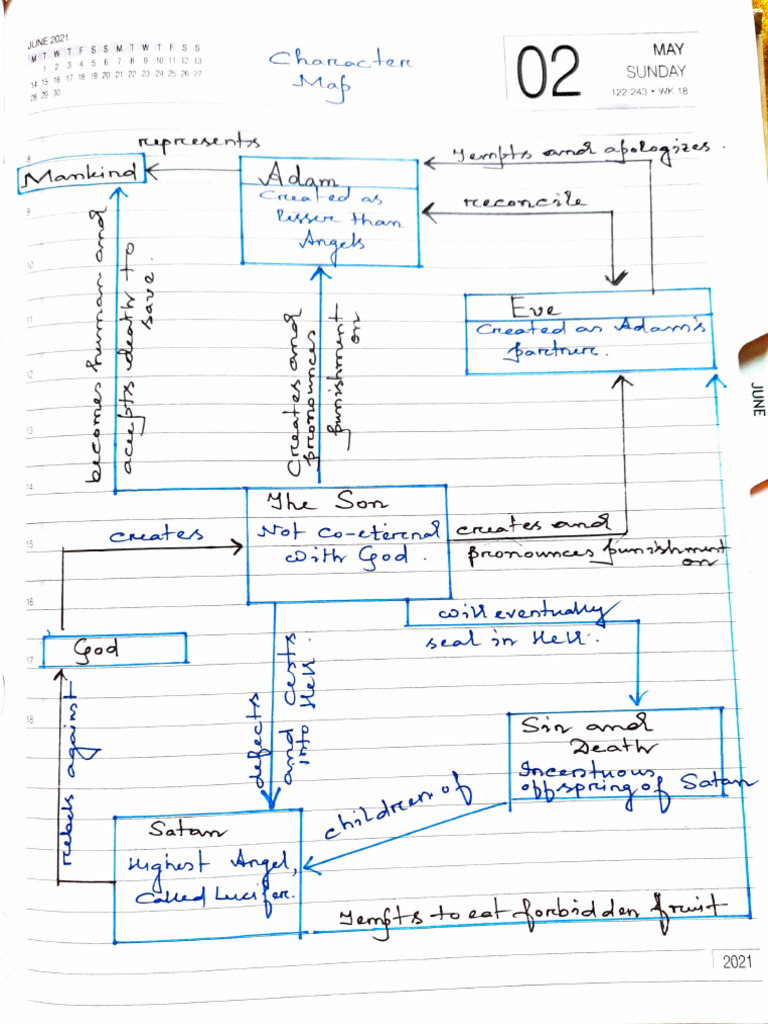 JUNE 2021
M T W T F S S M T W T F S S
1 2 3 4 5 6 7 8 9 10 11 12 13
14 15 16 17 18 19 20 21 22 23 24 25 26 27
28 29 30
Character
Map
02
MAY
SUNDAY
122-243 • WK 18
represents
Mankind
Adam
Created as
lesser than
Angels
Tempts and apologizes.
reconcile
Eve
Created as Adam's
partner.
becomes human and
accepts death to
save.
Creates and
pronounces
punishment
on
JUNE
The Son
Not co-eternal
with God.
creates
creates and
pronounces punishment
on
will eventually
seal in Hell.
God
rebels against
defects
and casts
into Hell.
Sin and
Death
Incerstuous
offspring of Satan
children of
Satan
Highest Angel,
called Lucifer.
Tempts to eat forbidden fruit
8
9
10
11
12
13
14
15
16
17
18
2021